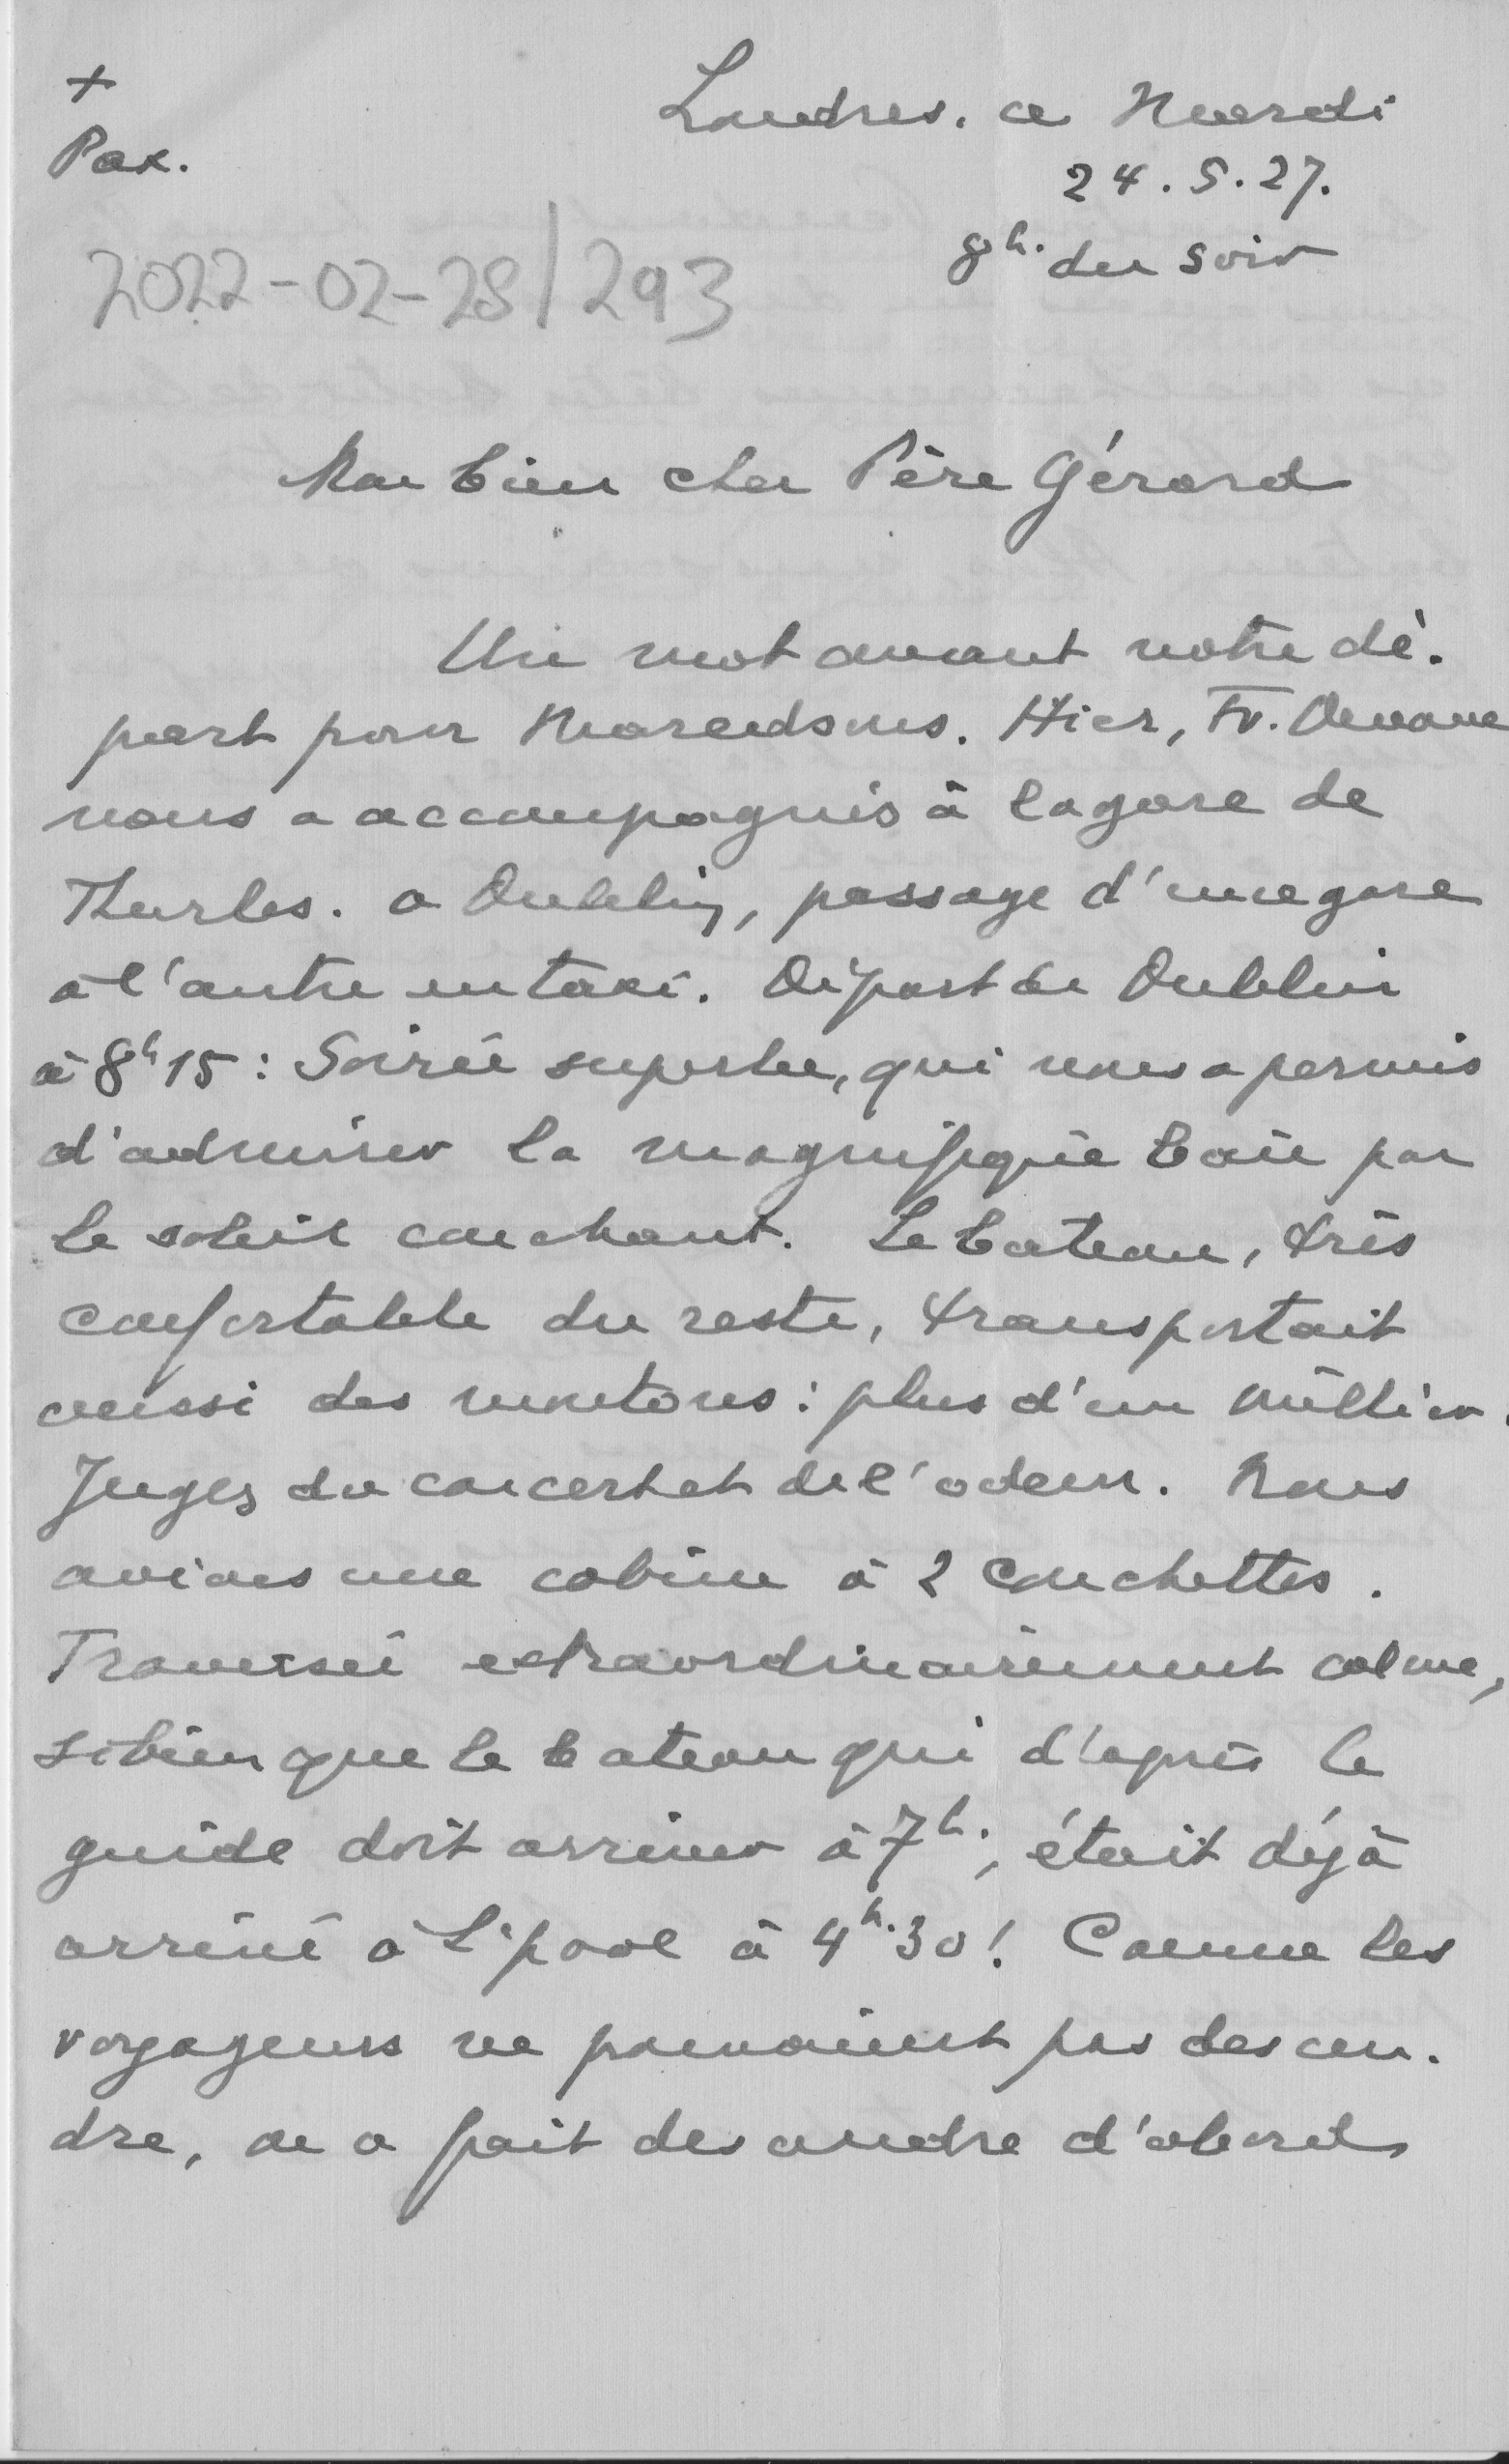 +
Pax.
Londres. ce Mardi
24.5.27.
8h. du soir
2022-02-28/293
Mon bien cher Père Gérard
Un mot avant notre dé-
part pour Maredsous. Hier, Fr.
nous a accompagnés à la gare de
Thurles. a Dublin, passage d'une gare
à l'autre en taxi. Départ de Dublin
à 8h15: Soirée superbe, qui nous a permis
d'admirer la magnifique baie par
le soleil couchant. Le bateau, très
confortable du reste, transportait
aussi des moutons: plus d'un millier.
Jugez du concert et de l'odeur. Nous
avions une cabine à 2 couchettes.
Traversée extraordinairement calme,
si bien que le bateau qui d'après le
guide doit arriver à 7h., était déjà
arrivé à L'pool à 4h.30! Comme les
voyageurs ne pouvaient pas descen-
dre, on a fait descendre d'abord